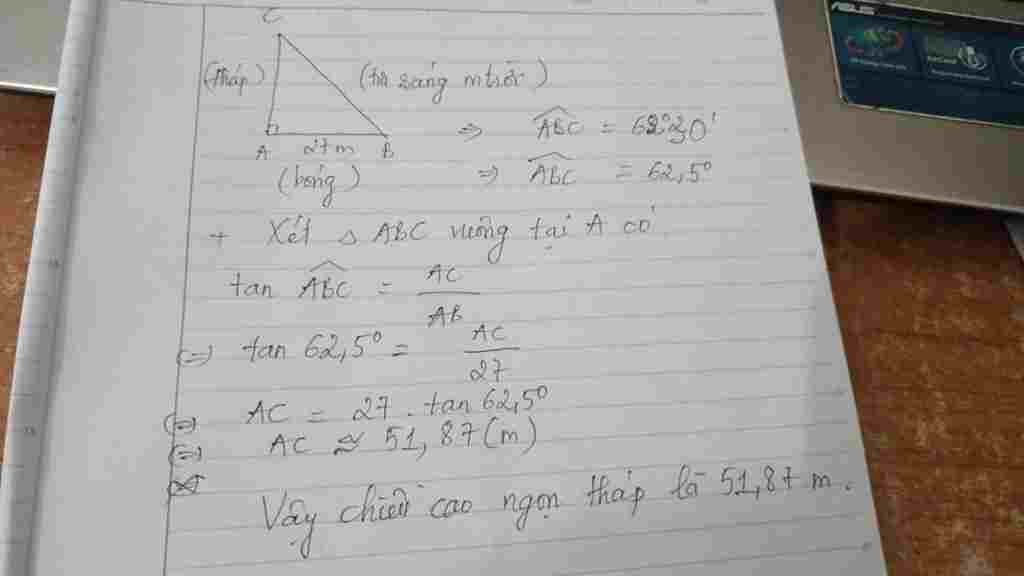 C
(tháp) (tia sáng mtrời)
A 27m B => ABC = 62°30'
(bóng) => ABC = 62,5°
+ Xét △ ABC vuông tại A có
tan ABC = AC / AB
(=) tan 62,5° = AC / 27
(=) AC = 27 . tan 62,5°
(=) AC ≈ 51,87 (m)
Vậy chiều cao ngọn tháp là 51,87 m.
ASUS